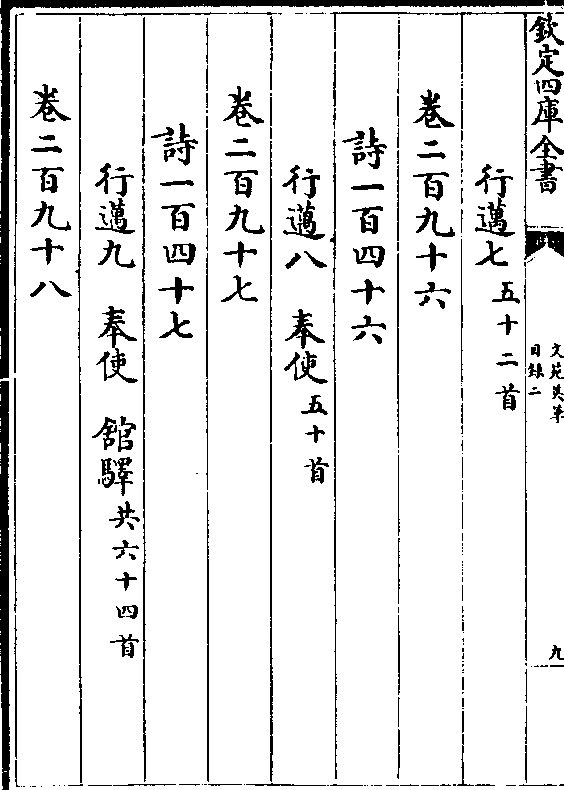 欽定四庫全書
文苑英華
目錄二
九
行邁七 五十二首
卷二百九十六
詩一百四十六
行邁八 奉使 五十首
卷二百九十七
詩一百四十七
行邁九 奉使 舘驛 共六十四首
卷二百九十八